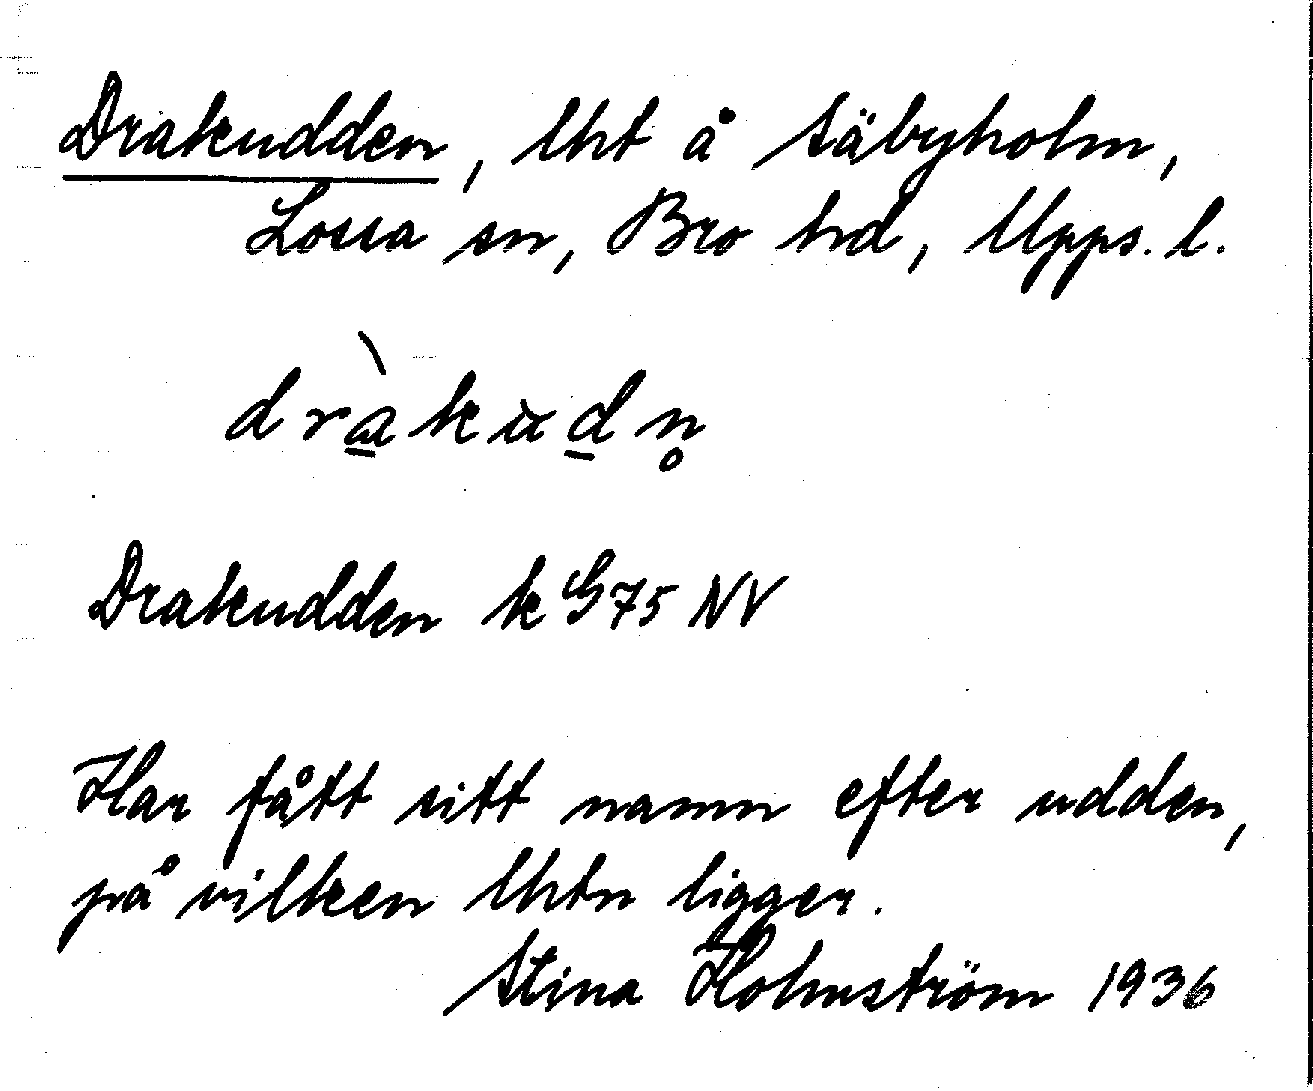 Drakudden, lht å Säbyholm,
Lossa sn, Bro hd, Upps. l.
dràkudn̥
Drakudden k G75 NV
Har fått sitt namn efter udden,
på vilken lhtn ligger.
Stina Holmström 1936